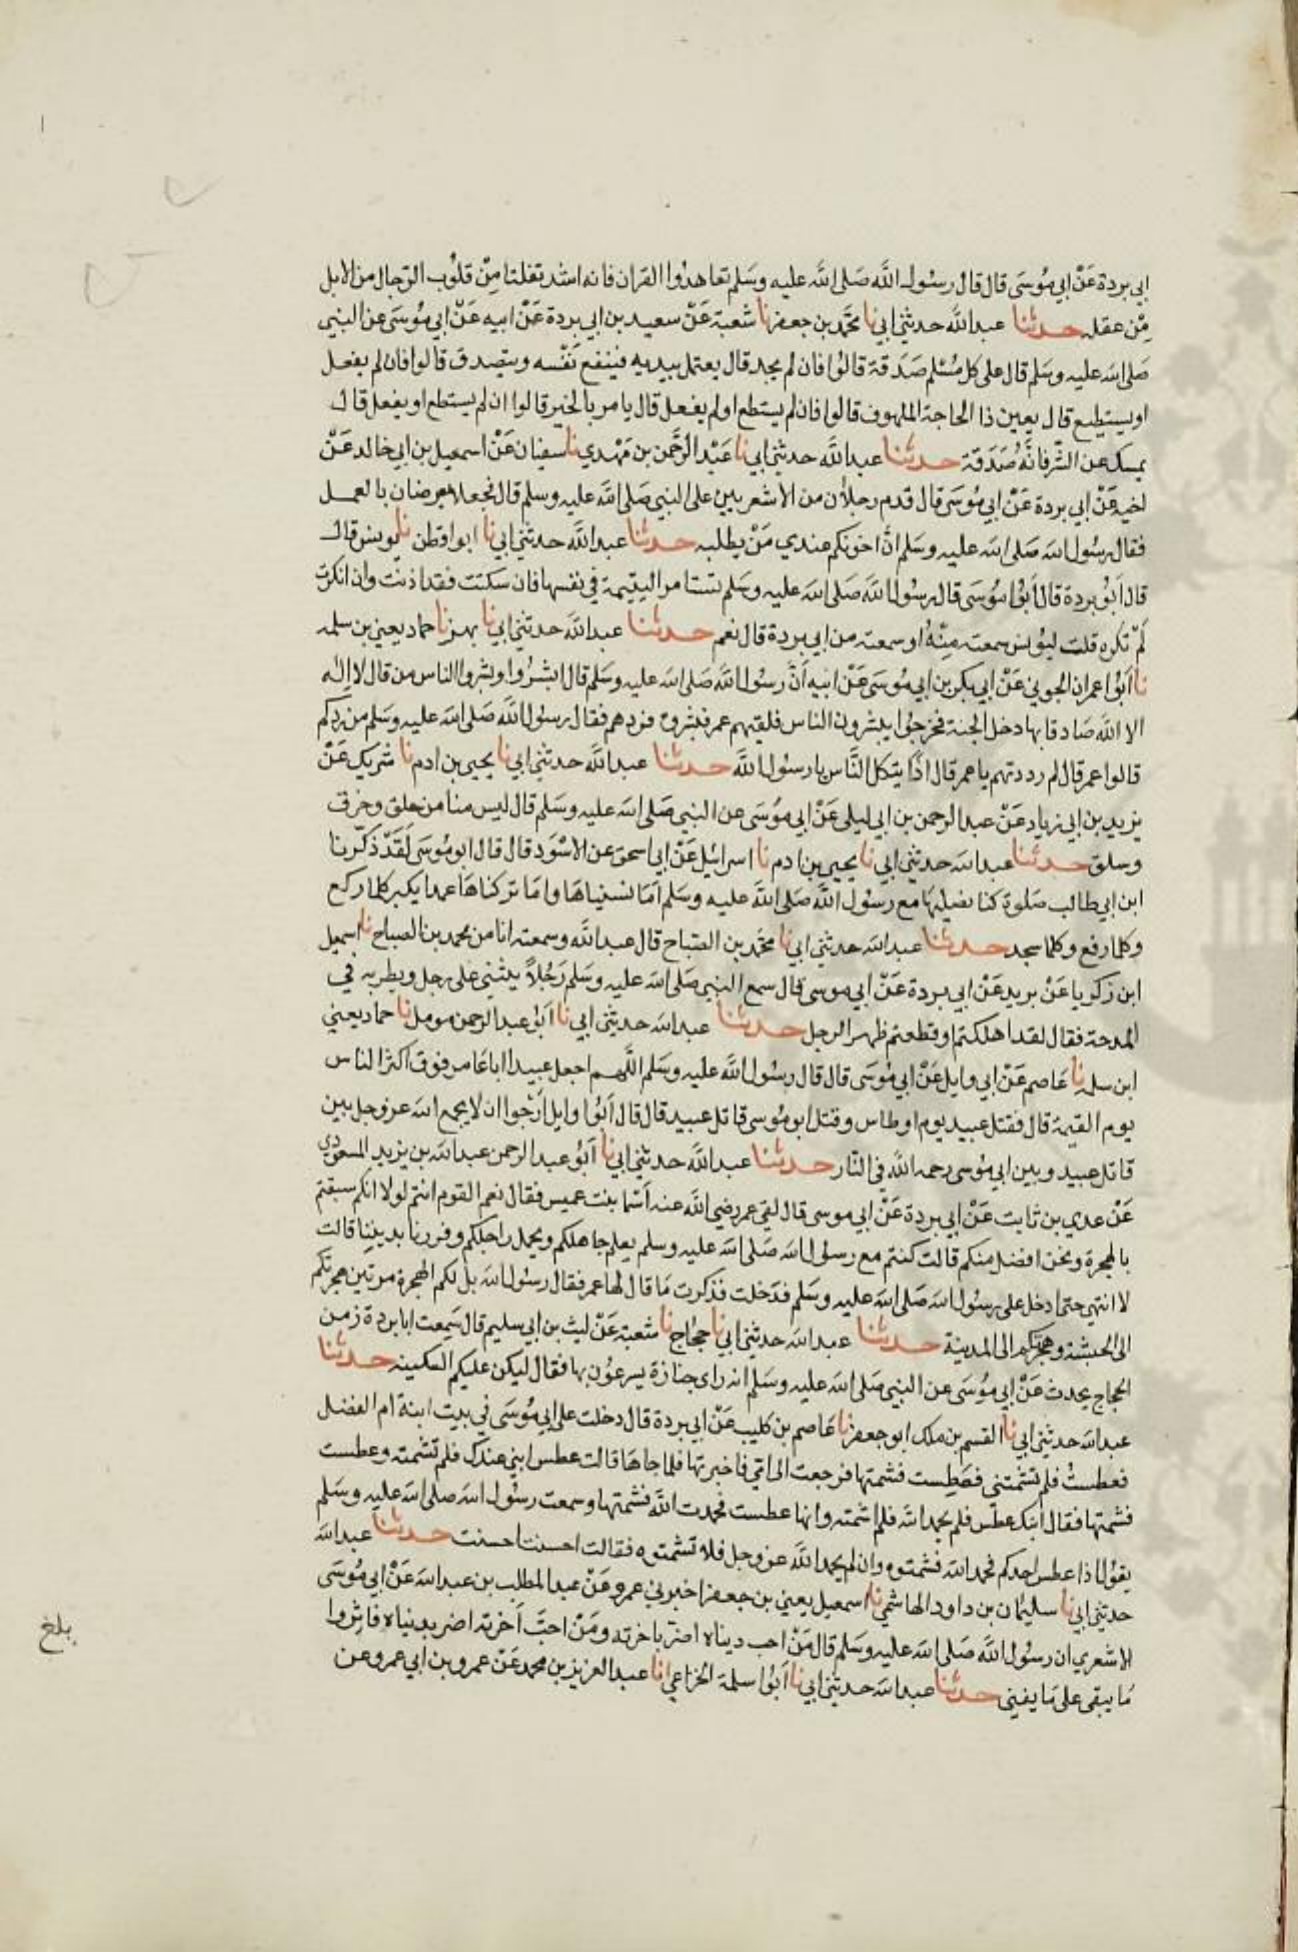 ابي بردة عَنْ ابي مُوسَى قال قال رسُول الله صَلى الله عليه وسَلم تعاهدُوا القران فانه اشد تفلتا مِنْ قلوُب الرّجال من الابل
مِنْ عقله حدثنا عبد الله حدثني ابي نا محمّد بن جعفر نا شعبة عَنْ سعيد بن ابي بردة عَنْ ابيه عَنْ ابي مُوسَى عن النبي
صَلى الله عليه وسَلم قال على كل مسُلم صَدَقة قالوُا فان لم يجد قال يعتمل بيديه فينفع نَفْسه ويتصدق قالوا فان لم يفعل
او يستطيع قال يعين ذا الحاجة الملهوف قالوا فان لم يستطع او لم يفعل قال يامر بالخير قالوا ان لم يستطع او يفعل قال
يمسك عن الشّر فانّه صَدَقة حدثنا عبد الله حدثني ابي نا عَبْد الرّحمن بن مَهْدي نا سفيان عَنْ اسمعيل بن ابي خالد عَنْ
اخيه عَنْ ابي بردة عَنْ ابي مُوسَى قال قدم رجلان من الاشعريين على النبي صَلى الله عليه وسلم قال فجعلا يعرضان بالعمل
فقال رسُول الله صَلى الله عليه وسَلم انّ اخونكم عندي مَنْ يطلبه حدثنا عبد الله حدثني ابي نا ابوا قطن نا يونس قال
قال اَبُو بردة قال اَبُوا مُوسَى قال رسُول الله صَلى الله عليه وسَلم تستامر اليتيمة في نفسها فان سكتت فقد اذنت وان انكرت
لم تكره قلت ليوُنس سمعته مِنْهُ او سمعته من ابي بردة قال نعم حدثنا عبد الله حدثني ابي نا بهز نا حماد يعني بن سلمه
نا اَبُوا عمران الجوني عَنْ ابي بكر بن ابي مُوسَى عَنْ ابيه اَنّ رسُول الله صَلى الله عليه وسَلم قال ابشرُوا وبشروا الناس من قال لا اله
الا الله صَادقا بها دخل الجنة فخرجُوا يبشرون الناس فلقيهم عمر فبشروه فردهم فقال رسوُل الله صَلى الله عليه وسَلم من ردكم
قالوا عمر قال لم رددتهم يا عمر قال اذًا يتكل النَّاس يا رسوُل الله حدثنا عبد الله حدثني ابي نا يحيى بن ادم نا شريك عَنْ
يزيد بن ابي زياد عَنْ عبد الرحمن بن ابي ليلى عَنْ ابي مُوسَى عن النبي صَلى الله عليه وسَلم قال ليس منا من حلق وخرق
وسلق حدثنا عبد الله حدثني ابي نا يحيى بن ادم نا اسرائيل عَنْ ابي اسحق عن الاسْوَد قال قال ابو مُوسَى لَقَدْ ذكّرنا
ابن ابي طالب صَلوة كنا نصليها مع رسوُل الله صَلى الله عليه وسَلم اما نسيناهَا واما تركناهَا عمدا يكبر كلما ركع
وكلما رفع وكلما سجد حدثنا عبد الله حدثني ابي نا محمّد بن الصّباح قال عبد الله وسمعته انا من محمد بن الصباح نا اسمعيل
ابن زكريا عَنْ بريد عَنْ ابي بردة عَنْ ابي موسى قال سمع النبي صَلى الله عليه وسَلم رَجُلاً يثني على رجل ويطريه في
المدحة فقال لقد اهلكتم او قطعتم ظهر الرجل حدثنا عبد الله حدثني ابي نا اَبُو عبد الرحمن مومل نا حماد يعني
ابن سلمه نا عَاصم عَنْ ابي وايل عَنْ ابي مُوسَى قال قال رسُول الله عليه وسَلم اللّهم اجعل عبيدا ابا عَامر فوق اكثر الناس
يوم القيمة قال فقتل عبيد يوم اوطاس وقتل ابو مُوسى قاتل عبيد قال قال اَبُوا وايل اَرْجُوا ان لا يجمع الله عز وجل بين
قاتل عبيد وبين ابي مُوسى رحمه الله في النّار حدثنا عبد الله حدثني ابي نا اَبُو عبد الرحمن عبد الله بن يزيد المسعودي
عَنْ عدي بن ثابت عَنْ ابي بردة عَنْ ابي موسى قال لقي عمر رضي الله عنه اَسْما بنت عميس فقال نعم القوم انتم لولا انكم سبقتم
بالهجرة ونحن افضل منكم قالت كنتم مع رسول الله صَلى الله عليه وسلم يعلم جاهلكم ويحمل راجلكم وفررنا بديننا قالت
لا انتهي حتى ادخل على رسوُل الله صَلى الله عليه وسَلم فدَخلت فذكرت مَا قال لها عمر فقال رسوُل الله بل لكم الهجرة مرتين هجرتكم
الى الحبشة وهجرتكم الى المدينة حدثنا عبد الله حدثني ابي نا حجاج نا شعبة عَنْ ليث بن ابي سليم قال سَمِعت ابا بردة زمن
الحجاج يحدث عَنْ ابي مُوسَى عن النبي صَلى الله عليه وسَلم انه راى جنازة يسرعُون بها فقال ليكن عليكم السكينه حدثنا
عبد الله حدثني ابي نا القسم بن ملك ابو جعفر نا عَاصم بن كليب عَنْ ابي بردة قال دخلت على ابي مُوسَى في بيت ابنة ام الفضل
فعطستُ فلم تشمّتني فعَطِست فشمتها فرجعت الى امّي فاخبرتها فلما جاهَا قالت عطس ابني عندَك فلم تشمته وعطست
فشمتها فقال ابنك عطس فلم يحمد الله فلم اشمته وانها عطست فحمدت الله فشمتها وسمعت رسوُل الله صلى الله عليه وسَلم
يقوُل اذا عطس احدكم فحمد الله فشمتوه وان لم يحمد الله عز وجل فلا تشمتوه فقالت احسنت احسنت حدثنا عبد الله
حدثني ابي نا سليمان بن داود الهاشمي نا اسمعيل يعني بن جعفر اخبرني عمرو عَنْ عبد المطلب بن عبد الله عَنْ ابي مُوسَى
الاشعري ان رسوُل الله صَلى الله عليه وسَلم قال مَنْ احب ديناه اضرّ باخرته ومَنْ احبّ اَخرته اضر بدنياه فاثِروا
مَا يبقى على مَا يفنى حدثنا عبد الله حدثني ابي نا اَبُوا سلمة الخزاعي انا عبد العزيز بن محمد عَنْ عمرو بن ابي عمرو عن
بلغ